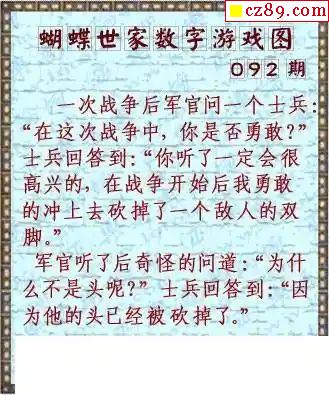 cz89.com
蝴蝶世家数字游戏图
092期
一次战争后军官问一个士兵：
“在这次战争中，你是否勇敢？”
士兵回答到：“你听了一定会很
高兴的，在战争开始后我勇敢
的冲上去砍掉了一个敌人的双
脚。”
军官听了后奇怪的问道：“为什
么不是头呢？” 士兵回答到：“因
为他的头已经被砍掉了。”